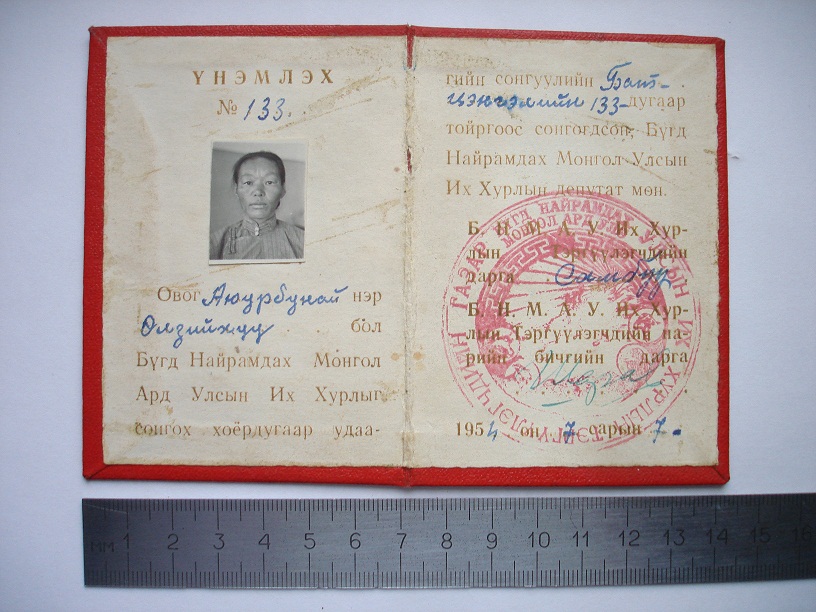 ҮНЭМЛЭХ
№ 133.
Овог Аюурбунай нэр
Өлзийхүү бол
Бүгд Найрамдах Монгол
Ард Улсын Их Хурлыг
сонгох хоёрдугаар удаа-
гийн сонгуулийн Бат-
цэнгэлийн 133-дугаар
тойргоос сонгогдсон, Бүгд
Найрамдах Монгол Улсын
Их Хурлын депутат мөн.
Б. Н. М. А. У. Их Хур-
лын Тэргүүлэгчдийн
дарга Самбуу
Б. Н. М. А. У. Их Хур-
лын Тэргүүлэгчдийн на-
рийн бичгийн дарга
1954 он 7 сарын 7-
БҮГД НАЙРАМДАХ
МОНГОЛ АРД УЛСЫН ИХ ХУРЛЫН ТЭРГҮҮЛЭГЧДИЙН ГАЗАР
мм 1 2 3 4 5 6 7 8 9 10 11 12 13 14 15 16